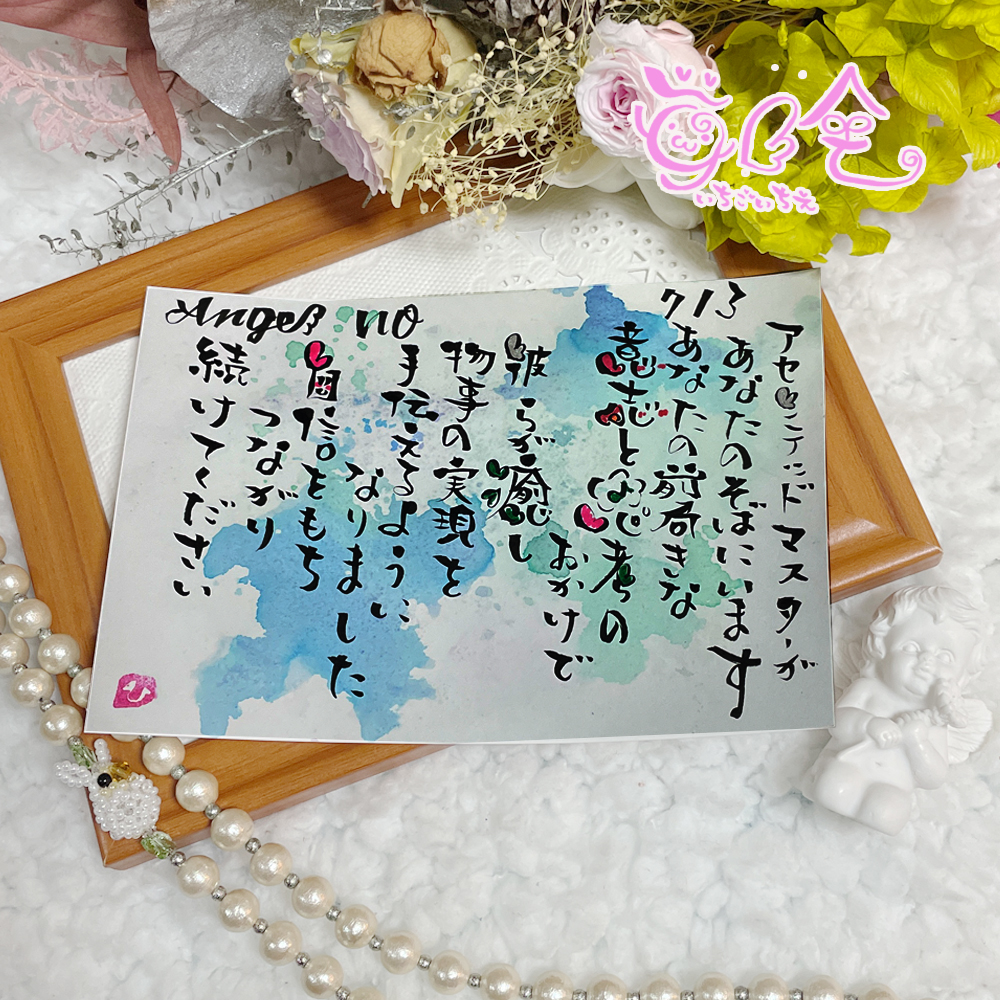 Angel no
713
アセンデッドマスターが
あなたのそばにいます
あなたの前向きな
意志と思考の
おかけで
彼らが癒し
物事の実現を
手伝えるように
なりました
自信をもち
つながり
続けてください
いちごいちえ